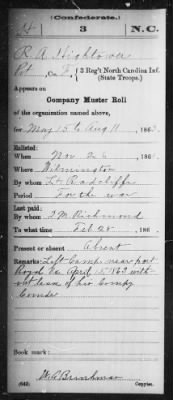 (Confederate.)
H 3 N.C.
R A Hightower
Pvt, Co. F, 3 Reg't North Carolina Inf.
(State Troops.)
Appears on
Company Muster Roll
of the organization named above,
for May 1 5 to Aug 11, 186
Enlisted:
When Nov 26, 186
Where Wilmington
By whom Lt Radcliffe
Period For the war
Last paid:
By whom T M Richmond
To what time Feb 28, 186
Present or absent Absent
Remarks: Left Camp near port
Royal Va. April 15 1863 with-
out leave of his Compy
Comdr
Book mark:
(642) Copyist.